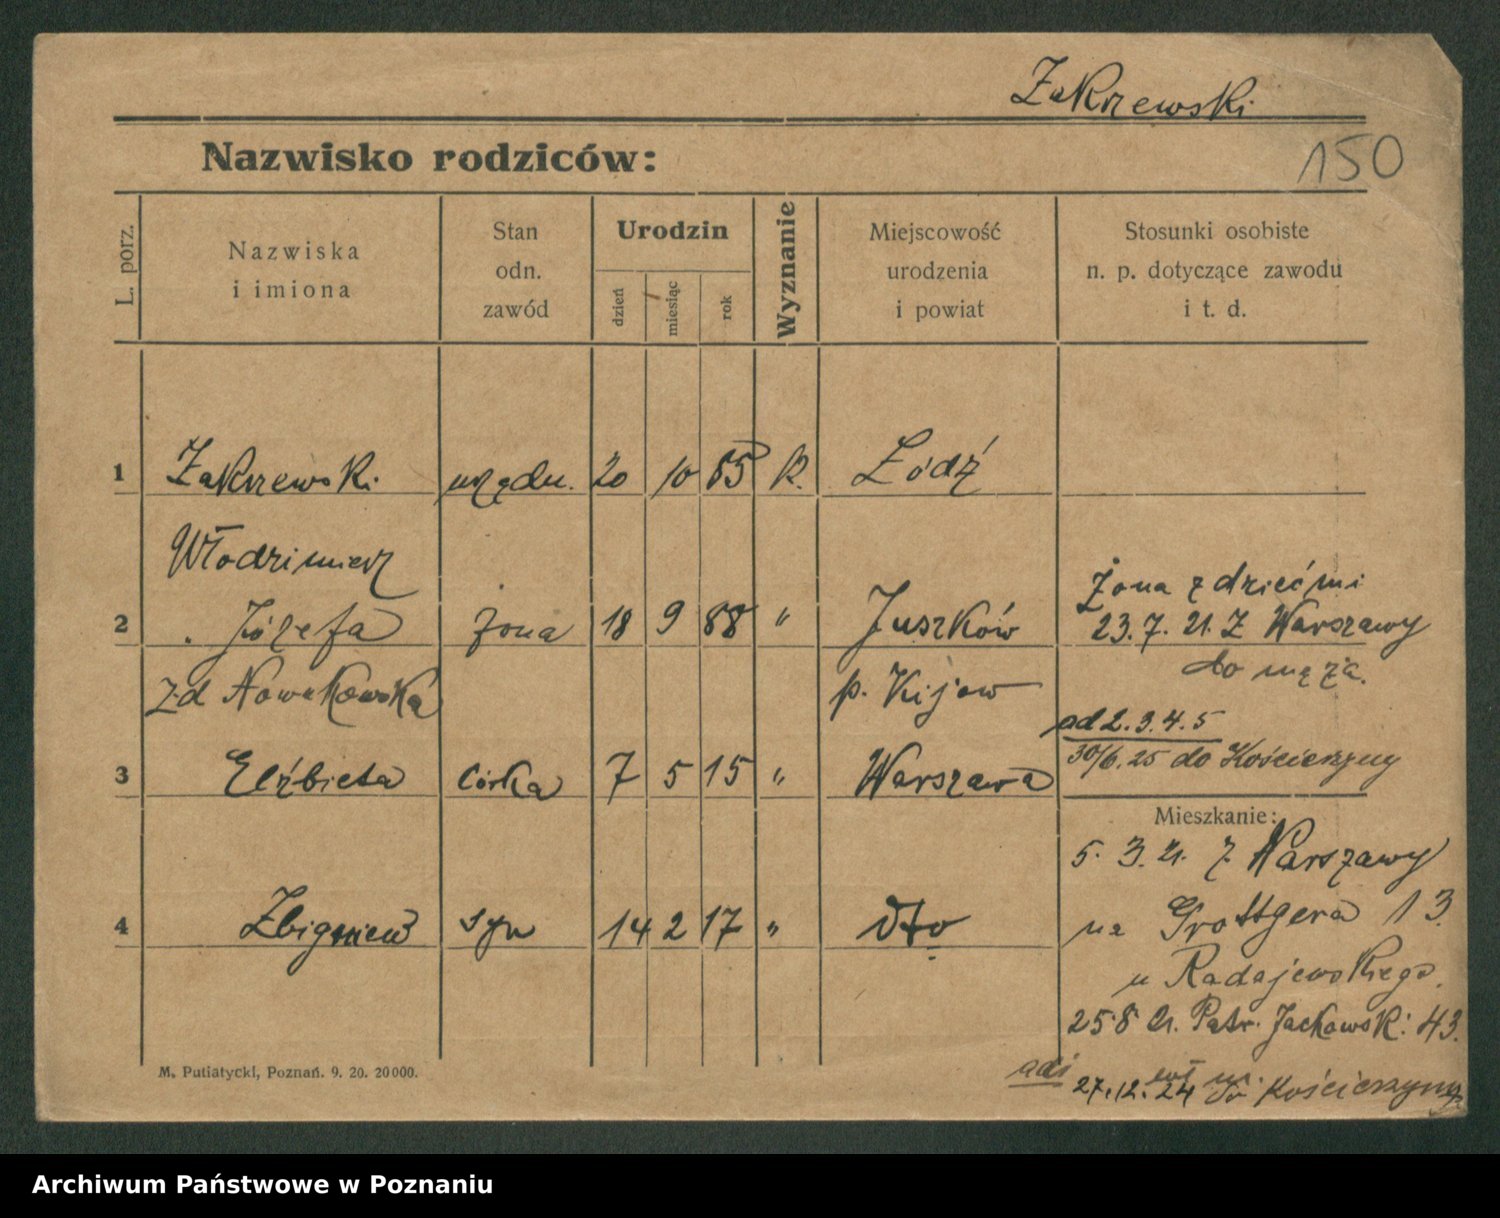 Zakrzewski
Nazwisko rodziców:
150
L. porz.
Nazwiska
i imiona
Stan
odn.
zawód
Urodzin
dzień
miesiąc
rok
Wyznanie
Miejscowość
urodzenia
i powiat
Stosunki osobiste
n. p. dotyczące zawodu
i t. d.
1 Zakrzewski urzędn. 20 10 85 k. Łódź
Włodzimierz
2 Józefa żona 18 9 88 " Juszków
zd Nowakowska p. Kijow
Żona z dziećmi
23.7.21. Z Warszawy
do męża.
ad 2.3.4.5
30/6.25 do Kościerzyny
3 Elżbieta córka 7 5 15 " Warszawa
Mieszkanie:
5. 3. 21. z Warszawy
na Grottgera 13.
u Radajewskiego.
4 Zbigniew syn 14 2 17 " dto
25.8 21. Patr. Jackowsk: 43.
ad1
27.12.24 do Kościerzyny
M. Putiatycki, Poznań. 9. 20. 20000.
Archiwum Państwowe w Poznaniu